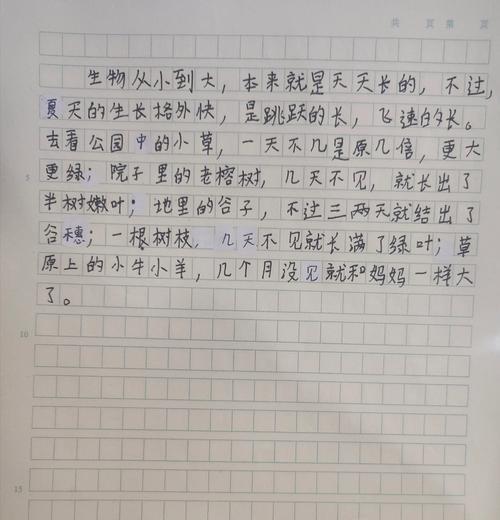 共 页 第 页
生物从小到大，本来就是天天长的，不过，
夏天的生长格外快，是跳跃的长，飞速的长。
去看公园中的小草，一天不几是原几倍，更大
更绿；院子里的老榕树，几天不见，就长出了
半树嫩叶；地里的谷子，不过三两天就结出了
谷穗；一根树枝，几天不见就长满了绿叶；草
原上的小牛小羊，几个月没见就和妈妈一样大
了。
5
10
15